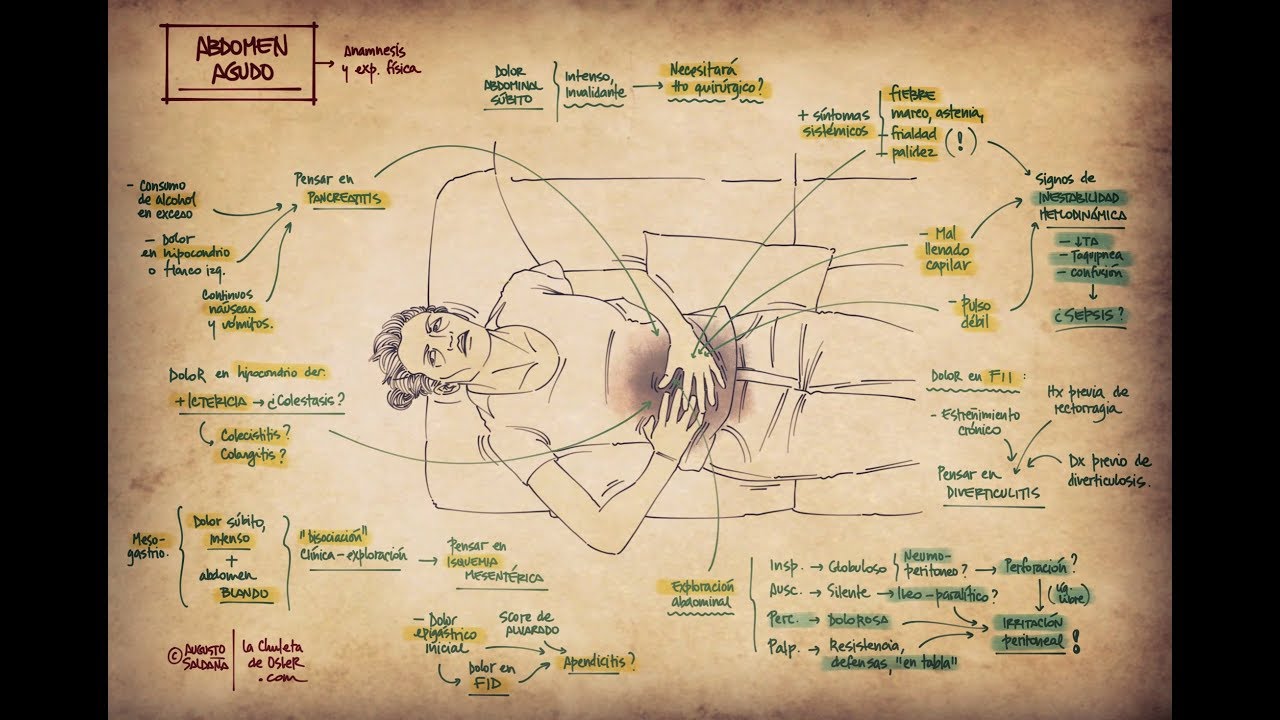 ABDOMEN
AGUDO
Anamnesis
y exp. física
DOLOR
ABDOMINAL
SÚBITO
Intenso,
Invalidante
Necesitará
tto quirúrgico?
+ síntomas
sistémicos
- FIEBRE
- mareo, astenia,
- frialdad
- palidez
(!)
Signos de
INESTABILIDAD
HEMODINÁMICA
- ↓TA
- Taquipnea
- confusión
¿SEPSIS?
- Mal
llenado
capilar
- Pulso
débil
- Consumo
de alcohol
en exceso
- Dolor
en hipocondrio
o flanco izq.
Continuos
náuseas
y vómitos.
Pensar en
PANCREATITIS
Dolor en hipocondrio der.
+ ICTERICIA → ¿Colestasis?
Colecistitis?
Colangitis?
Dolor en FII :
- Estreñimiento
crónico
Hx previa de
rectorragia
Dx previo de
diverticulosis.
Pensar en
DIVERTICULITIS
Meso-
gastrio.
Dolor súbito,
intenso
+
abdomen
BLANDO
"Disociación"
Clínica - exploración
Pensar en
ISQUEMIA
MESENTÉRICA
- Dolor
epigástrico
inicial
Score de
ALVARADO
Dolor en
FID
Apendicitis?
Exploración
abdominal
Insp. → Globuloso
Neumo-
peritoneo?
→ Perforación?
(vg.
libre)
Ausc. → Silente → Íleo-paralítico?
Perc. → DOLOROSA
Palp. → Resistencia,
defensas, "en tabla"
IRRITACIÓN
peritoneal !
© AUGUSTO
SALDAÑA
La Chuleta
de OsleR
.com